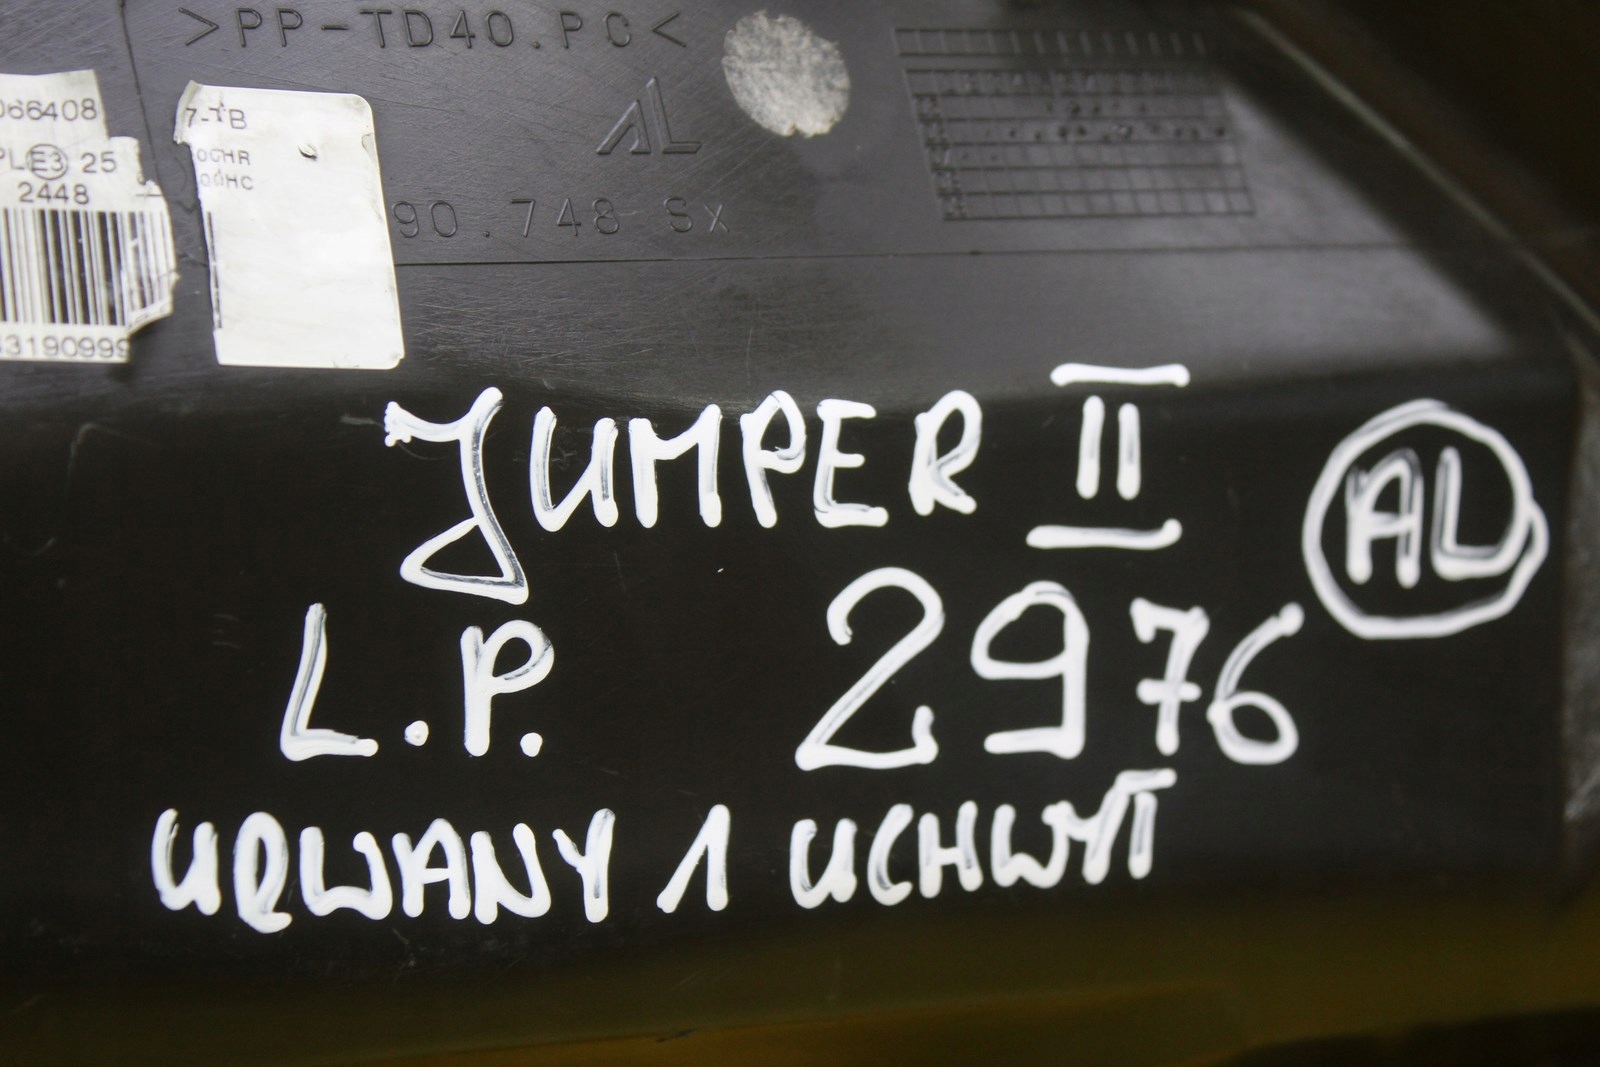 >PP-TD40.PC<
AL
066408
PLE3 25
2448
43190999
7-TB
00HR
00HC
90.748 Sx
JUMPER II
AL
L.P. 2976
URWANY 1 UCHWYT